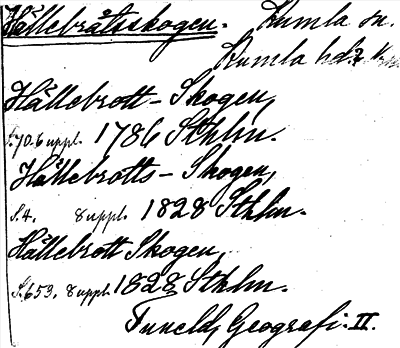 Hållebråtsskogen. Kumla sn.
Kumla hd.
Hållebrott-Skogen,
S. 70. 6 uppl. 1786 Sthlm.
Hållebrotts-Skogen,
S. 4. 8 uppl. 1828 Sthlm.
Hållebrott Skogen,
S. 659. 8 uppl. 1828 Sthlm.
Tuneld, Geografi. II.